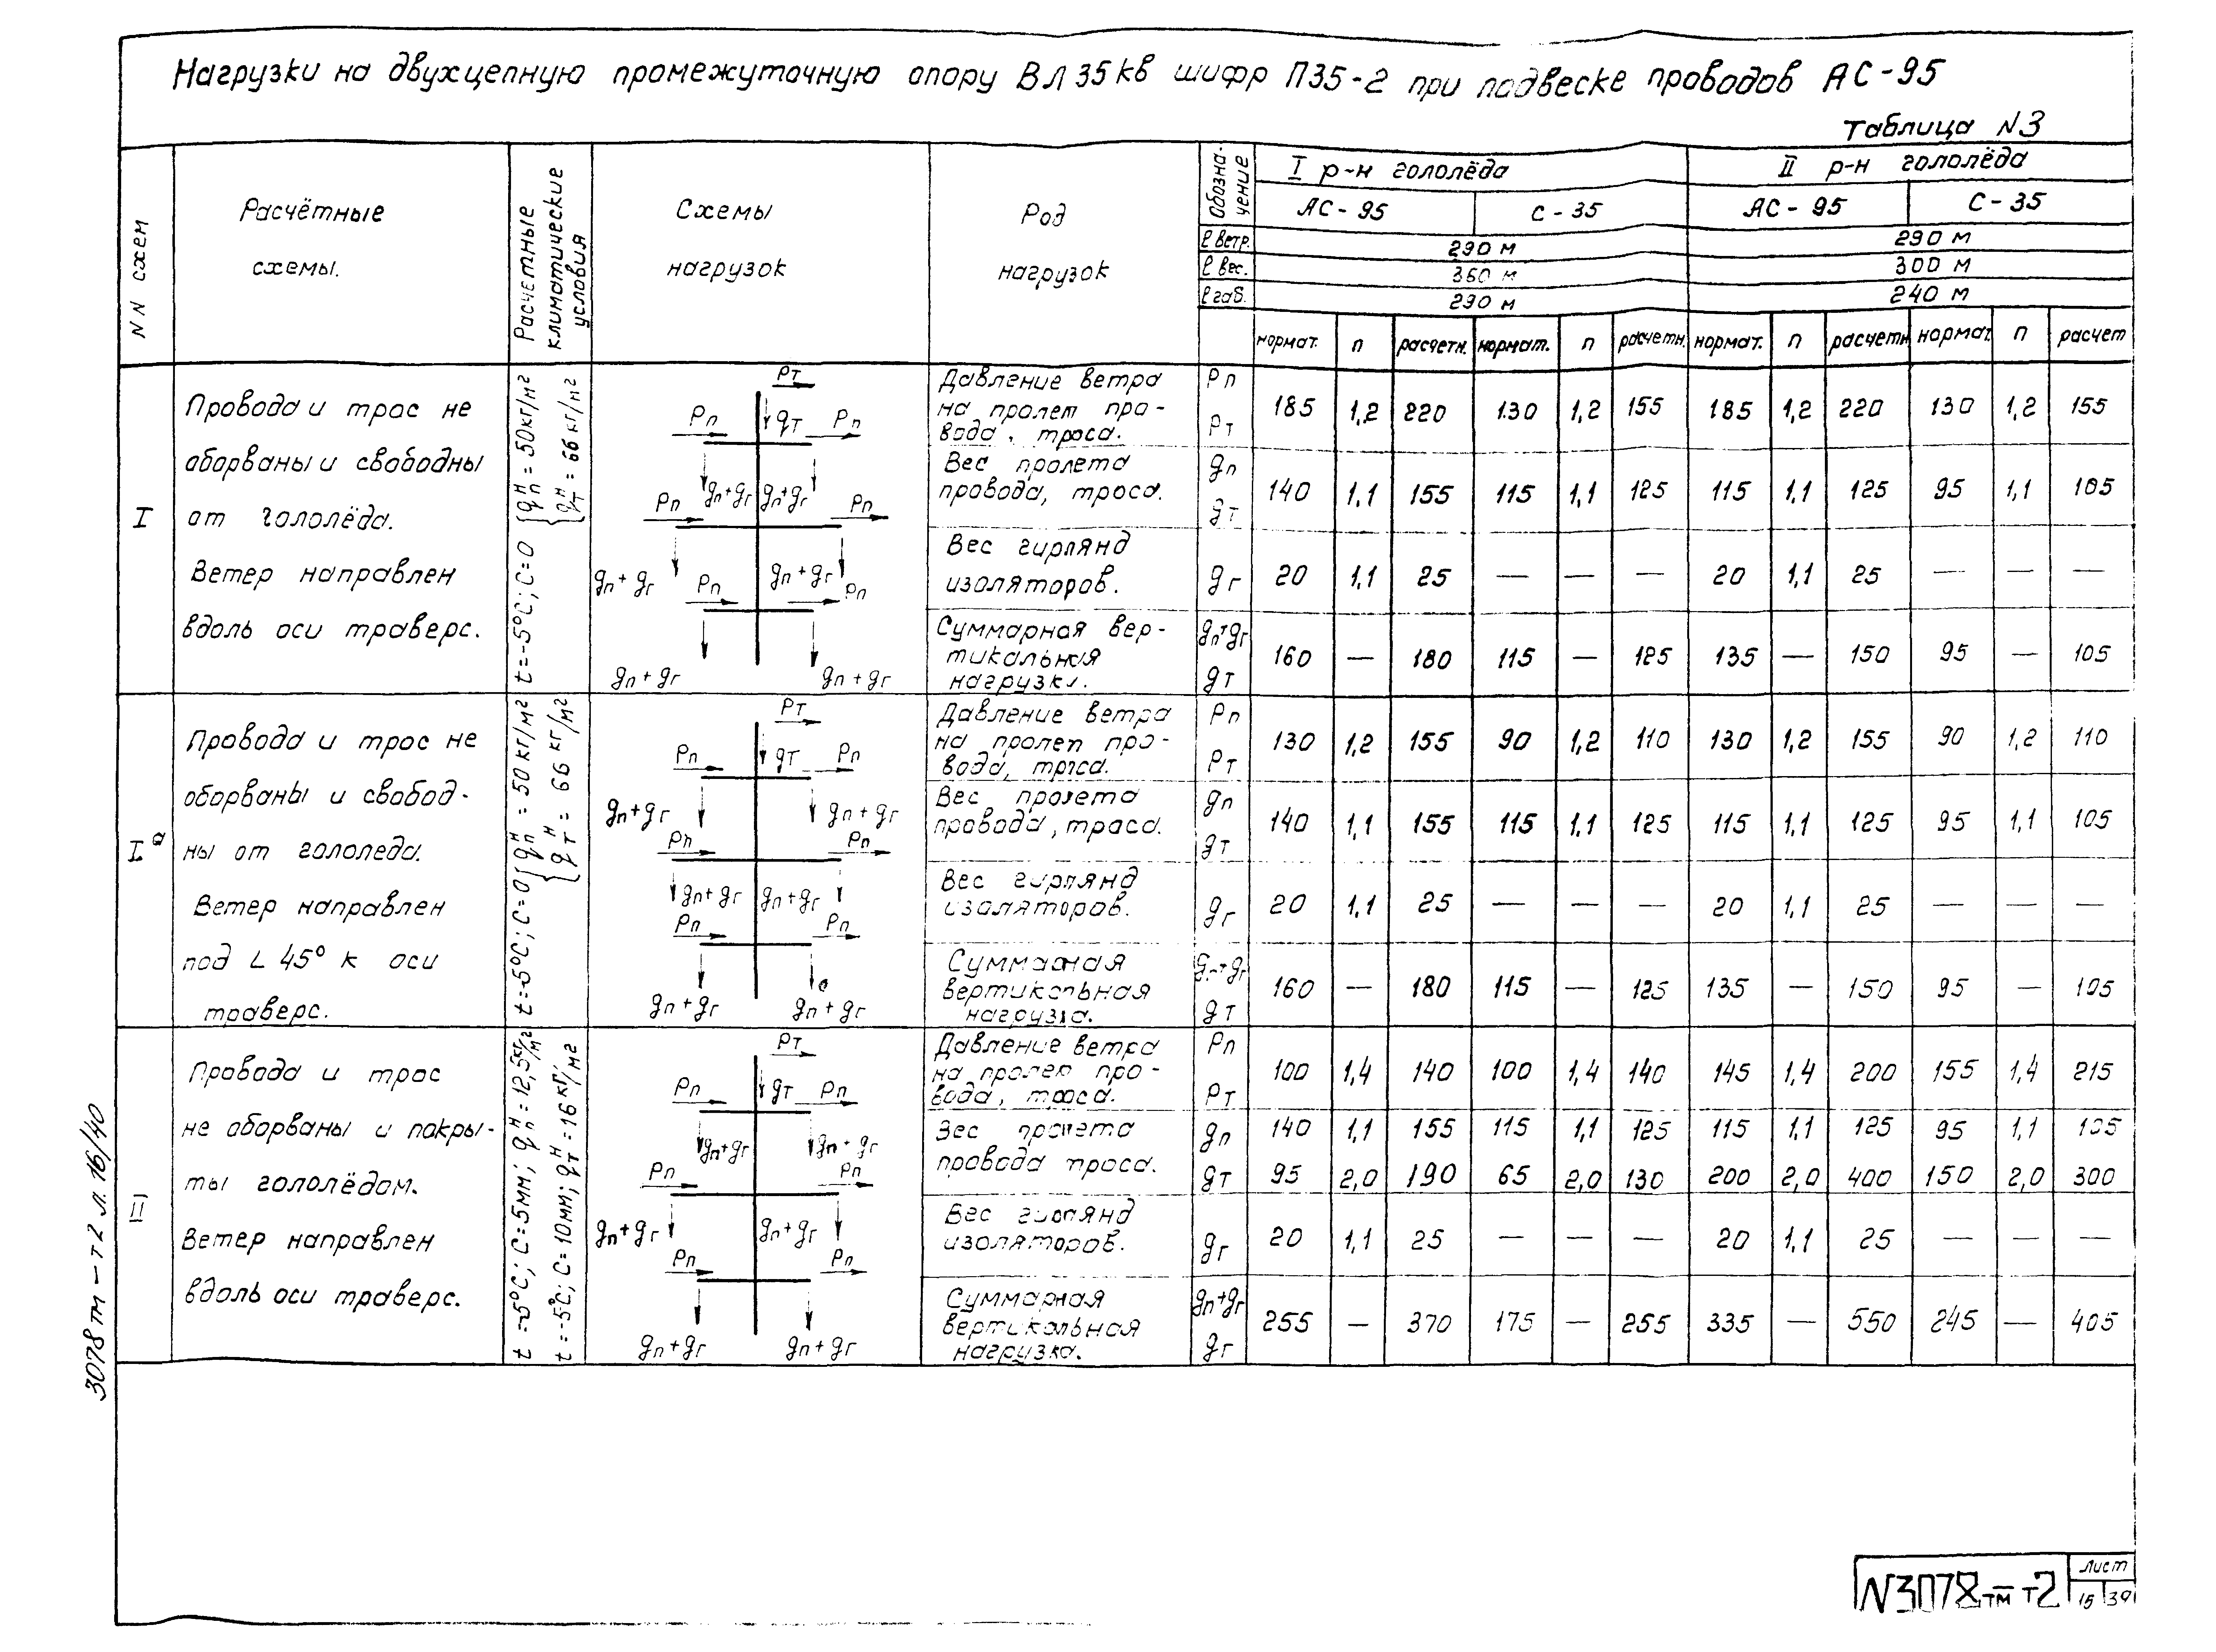 Нагрузки на двухцепную промежуточную опору ВЛ 35 кв шифр П35-2 при подвеске проводов АС-95
Таблица N3
NN схем
Расчётные
схемы.
Расчетные
климатические
условия
Схемы
нагрузок
Род
нагрузок
Обозна-
чение
I р-н гололёда
II р-н гололёда
АС-95 С-35 АС-95 С-35
ℓ ветр. 290 м 290 м
ℓ вес. 360 м 300 м
ℓ габ. 290 м 240 м
нормат. n расчетн. нормат. n расчетн. нормат. n расчетн нормат. n расчет
I
Провода и трос не
оборваны и свободны
от гололёда.
Ветер направлен
вдоль оси траверс.
t=-5°C; C=0 { qпн = 50кг/м2
qтн = 66кг/м2
Pт
Pп gт Pп
gп+gг gп+gг
Pп Pп
gп+gг gп+gг
Pп Pп
gп+gг gп+gг
Давление ветра
на пролет про-
вода, троса.
Pп
Pт
185 1,2 220 130 1,2 155 185 1,2 220 130 1,2 155
Вес пролета
провода, троса.
gп
gт
140 1,1 155 115 1,1 125 115 1,1 125 95 1,1 105
Вес гирлянд
изоляторов.
gг
20 1,1 25 — — — 20 1,1 25 — — —
Суммарная вер-
тикальная
нагрузка.
gп+gг
gт
160 — 180 115 — 125 135 — 150 95 — 105
Iа
Провода и трос не
оборваны и свобод-
ны от гололеда.
Ветер направлен
под L 45° к оси
траверс.
t=-5°C; C=0 { qпн = 50 кг/м2
qтн = 66 кг/м2
Pт
Pп gт Pп
gп+gг gп+gг
Pп Pп
gп+gг gп+gг
Pп Pп
gп+gг gп+gг
Давление ветра
на пролет про-
вода, троса.
Pп
Pт
130 1,2 155 90 1,2 110 130 1,2 155 90 1,2 110
Вес пролета
провода, троса.
gп
gт
140 1,1 155 115 1,1 125 115 1,1 125 95 1,1 105
Вес гирлянд
изоляторов.
gг
20 1,1 25 — — — 20 1,1 25 — — —
Суммарная
вертикальная
нагрузка.
gп+gг
gт
160 — 180 115 — 125 135 — 150 95 — 105
II
Провода и трос
не оборваны и покры-
ты гололёдом.
Ветер направлен
вдоль оси траверс.
t=-5°C; C=5мм; qпн=12,5кг/м2
t=-5°C; C=10мм; qтн=16кг/м2
Pт
Pп gт Pп
gп+gг gп+gг
Pп Pп
gп+gг gп+gг
Pп Pп
gп+gг gп+gг
Давление ветра
на пролет про-
вода, троса.
Pп
Pт
100 1,4 140 100 1,4 140 145 1,4 200 155 1,4 215
Вес пролета
провода троса.
gп
gт
140 1,1 155 115 1,1 125 115 1,1 125 95 1,1 105
95 2,0 190 65 2,0 130 200 2,0 400 150 2,0 300
Вес гирлянд
изоляторов.
gг
20 1,1 25 — — — 20 1,1 25 — — —
Суммарная
вертикальная
нагрузка.
gп+gг
gг
255 — 370 175 — 255 335 — 550 245 — 405
3078тм-т2 л. 16/40
N3078тм-т2
лист
15 39